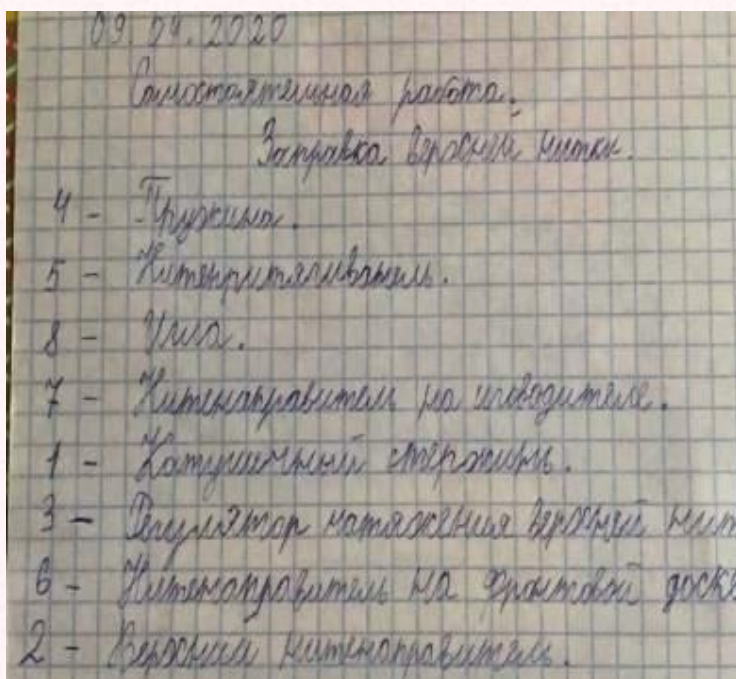 09.04.2020
Самостоятельная работа.
Заправка верхней нитки.
4 - Пружина.
5 - Нитепритягиватель.
8 - Игла.
7 - Нитенаправитель на иловодителе.
1 - Катушечный стержинь.
3 - Регулятор натяжения верхней нит
6 - Нитенаправитель на фронтовой доске
2 - Верхний нитенаправитель.